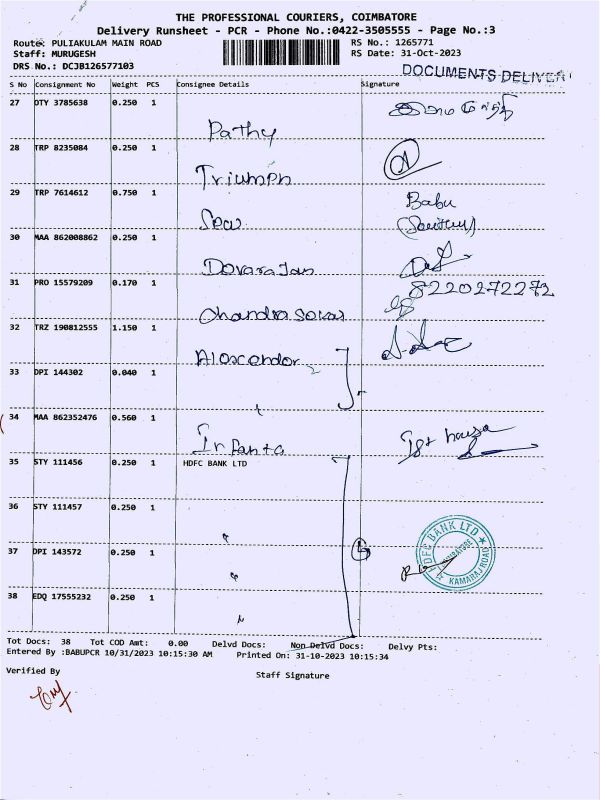 THE PROFESSIONAL COURIERS, COIMBATORE
Delivery Runsheet - PCR - Phone No.:0422-3505555 - Page No.:3
Route: PULIAKULAM MAIN ROAD RS No.: 1265771
Staff: MURUGESH RS Date: 31-Oct-2023
DRS No.: DCJB126577103
DOCUMENTS DELIVER
S No Consignment No Weight PCS Consignee Details Signature
27 DTY 3785638 0.250 1
Pathy
28 TRP 8235084 0.250 1
Triumph
29 TRP 7614612 0.750 1 Babu
30 MAA 862008862 0.250 1
Dovarajan
31 PRO 15579209 0.170 1 8220272272
Chandra sekar
32 TRZ 190812555 1.150 1
Aloxendor
33 DPI 144302 0.040 1
34 MAA 862352476 0.560 1
Infanta
35 STY 111456 0.250 1 HDFC BANK LTD
36 STY 111457 0.250 1
37 DPI 143572 0.250 1
HDFC BANK LTD
COIMBATORE
KAMARAJ ROAD
38 EDQ 17555232 0.250 1
Tot Docs: 38 Tot COD Amt: 0.00 Delvd Docs: Non Delvd Docs: Delvy Pts:
Entered By :BABUPCR 10/31/2023 10:15:30 AM Printed On: 31-10-2023 10:15:34
Verified By Staff Signature